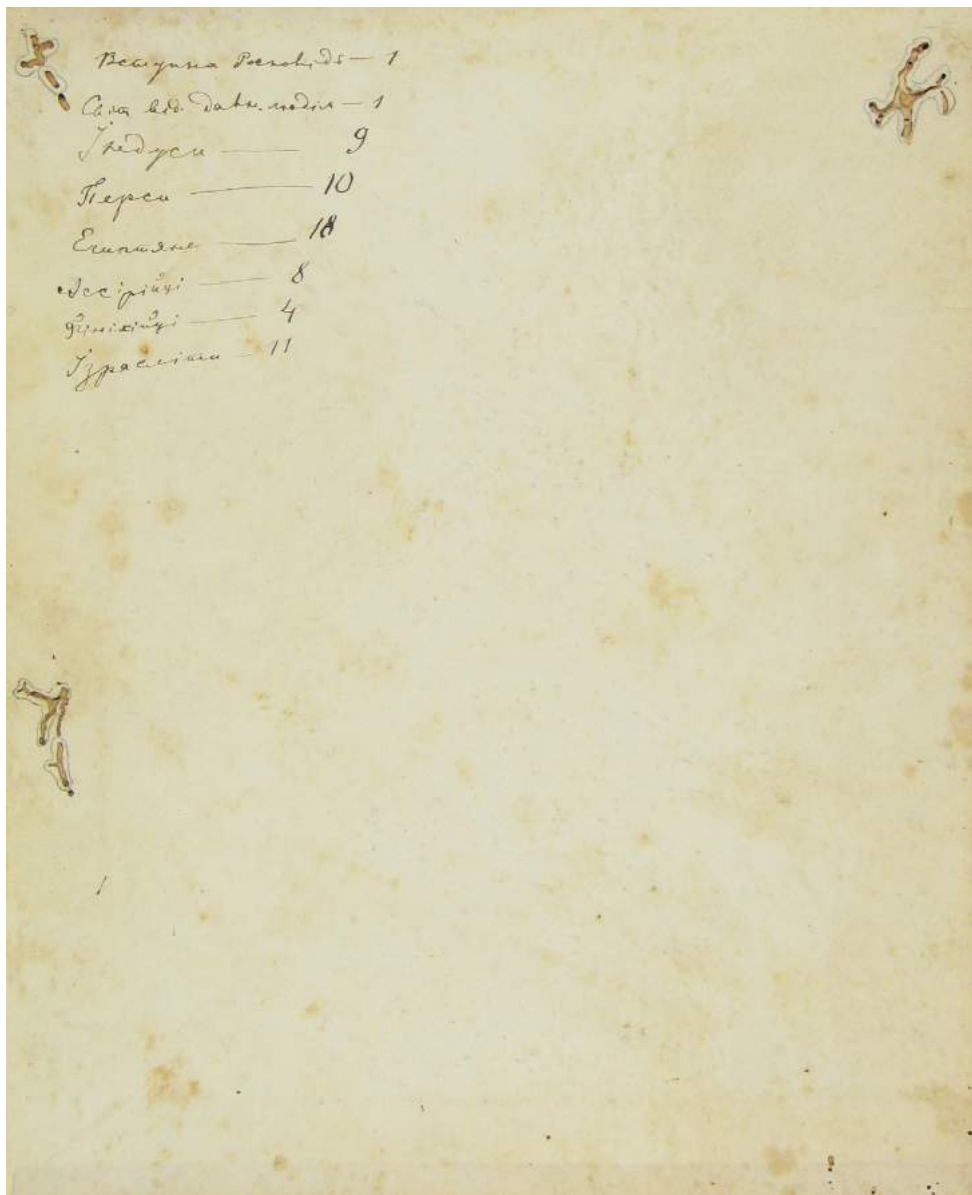 Вступна Росповідь — 1
Світ від. давн. людям — 1
Індуси — 9
Перси — 10
Египтяне — 18
Ассірійці — 8
Фінікійці — 4
Ізраеліти — 11